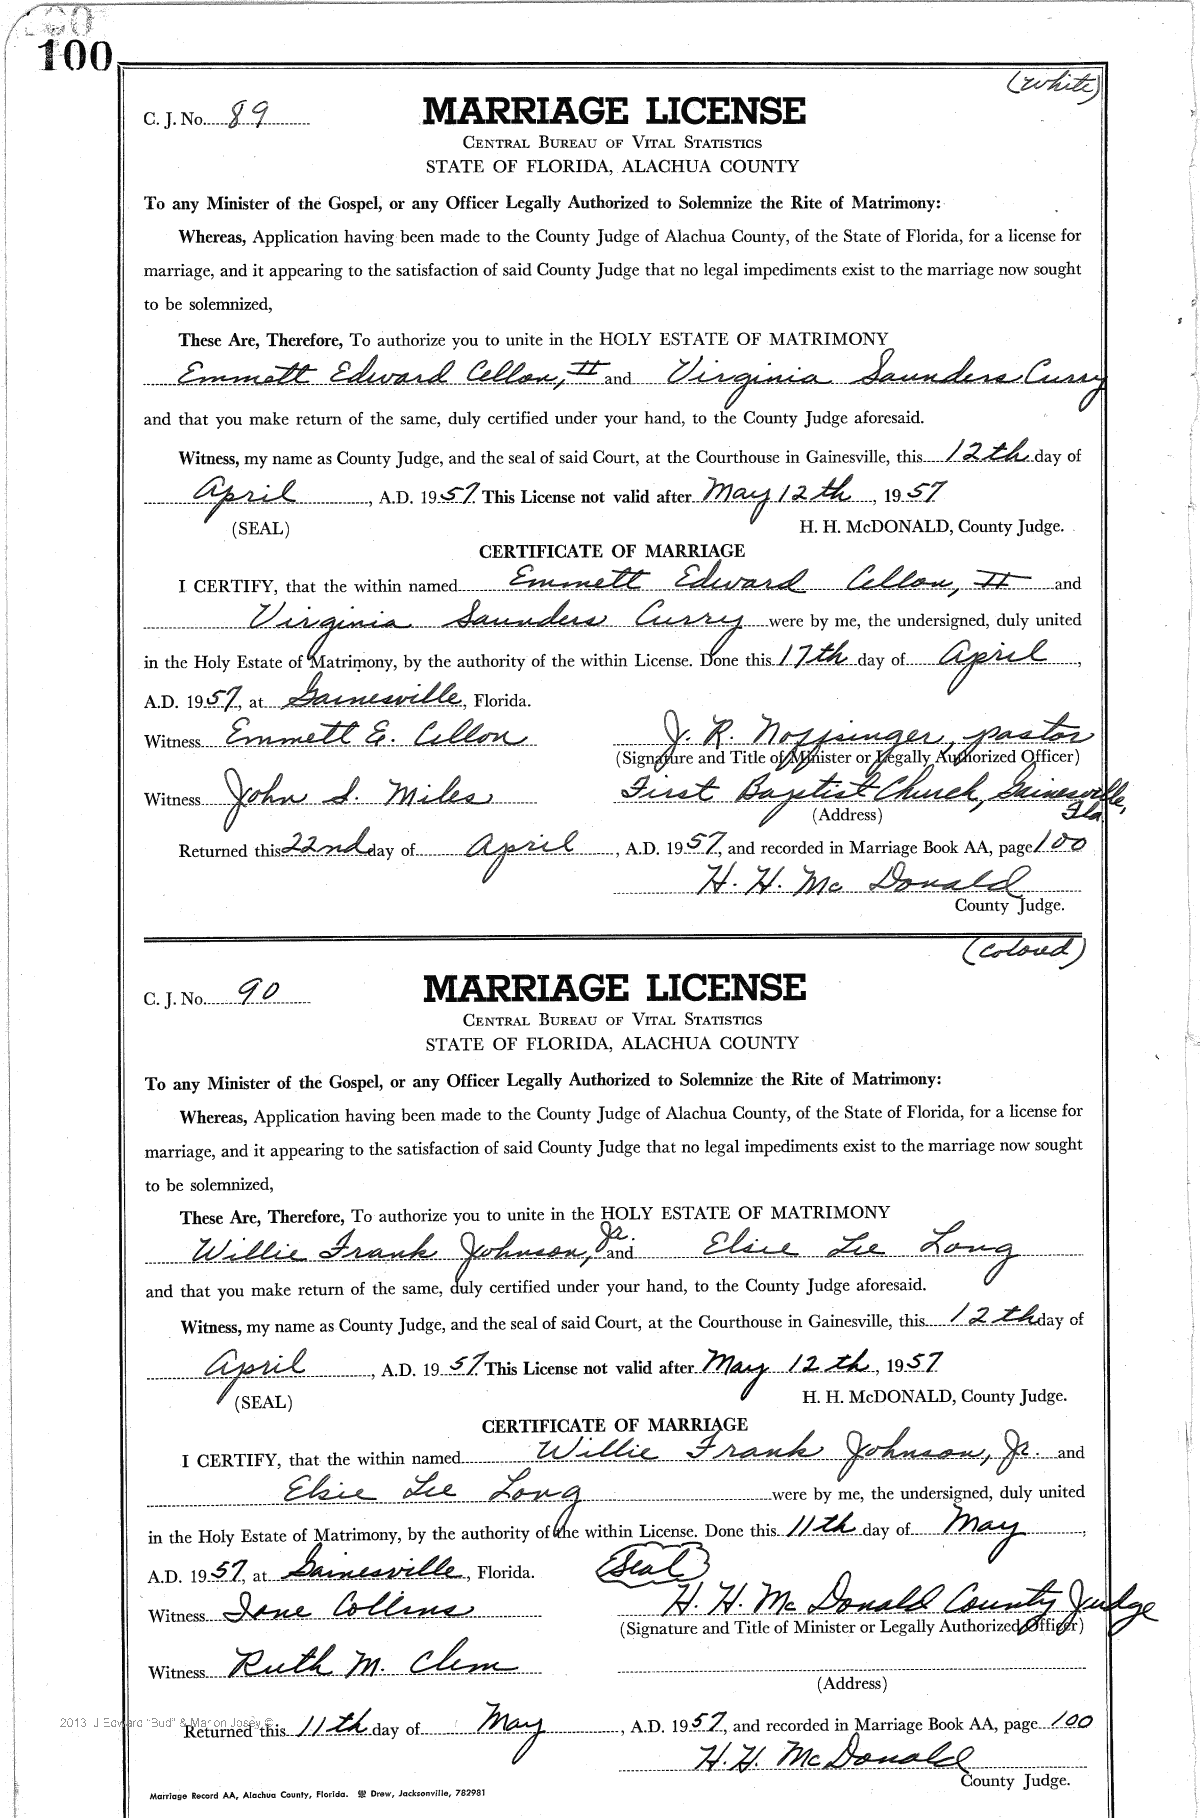 100
(white)
C. J. No. 89
MARRIAGE LICENSE
CENTRAL BUREAU OF VITAL STATISTICS
STATE OF FLORIDA, ALACHUA COUNTY
To any Minister of the Gospel, or any Officer Legally Authorized to Solemnize the Rite of Matrimony:
Whereas, Application having been made to the County Judge of Alachua County, of the State of Florida, for a license for
marriage, and it appearing to the satisfaction of said County Judge that no legal impediments exist to the marriage now sought
to be solemnized,
These Are, Therefore, To authorize you to unite in the HOLY ESTATE OF MATRIMONY
Emmett Edward Cellon, II and Virginia Saunders Curry
and that you make return of the same, duly certified under your hand, to the County Judge aforesaid.
Witness, my name as County Judge, and the seal of said Court, at the Courthouse in Gainesville, this 12th day of
April, A.D. 1957 This License not valid after May 12th, 1957
(SEAL) H. H. McDONALD, County Judge.
CERTIFICATE OF MARRIAGE
I CERTIFY, that the within named Emmett Edward Cellon, II and
Virginia Saunders Curry were by me, the undersigned, duly united
in the Holy Estate of Matrimony, by the authority of the within License. Done this 17th day of April,
A.D. 1957, at Gainesville, Florida.
Witness Emmett E. Cellon J. R. Noffsinger, pastor
(Signature and Title of Minister or Legally Authorized Officer)
Witness John S. Miles First Baptist Church, Gainesville, Fla.
(Address)
Returned this 22nd day of April, A.D. 1957, and recorded in Marriage Book AA, page 100
H. H. McDonald
County Judge.
(colored)
C. J. No. 90
MARRIAGE LICENSE
CENTRAL BUREAU OF VITAL STATISTICS
STATE OF FLORIDA, ALACHUA COUNTY
To any Minister of the Gospel, or any Officer Legally Authorized to Solemnize the Rite of Matrimony:
Whereas, Application having been made to the County Judge of Alachua County, of the State of Florida, for a license for
marriage, and it appearing to the satisfaction of said County Judge that no legal impediments exist to the marriage now sought
to be solemnized,
These Are, Therefore, To authorize you to unite in the HOLY ESTATE OF MATRIMONY
Willie Frank Johnson, Jr. and Elsie Lee Long
and that you make return of the same, duly certified under your hand, to the County Judge aforesaid.
Witness, my name as County Judge, and the seal of said Court, at the Courthouse in Gainesville, this 12th day of
April, A.D. 1957 This License not valid after May 12th, 1957
(SEAL) H. H. McDONALD, County Judge.
CERTIFICATE OF MARRIAGE
I CERTIFY, that the within named Willie Frank Johnson, Jr. and
Elsie Lee Long were by me, the undersigned, duly united
in the Holy Estate of Matrimony, by the authority of the within License. Done this 11th day of May,
A.D. 1957, at Gainesville, Florida. Seal
Witness Ione Collins H. H. McDonald County Judge
(Signature and Title of Minister or Legally Authorized Officer)
Witness Ruth M. Clem
(Address)
2013 J Edward "Bud" & Marion Josey ©
Returned this 11th day of May, A.D. 1957, and recorded in Marriage Book AA, page 100
H. H. McDonald
County Judge.
Marriage Record AA, Alachua County, Florida. Drew, Jacksonville, 782981